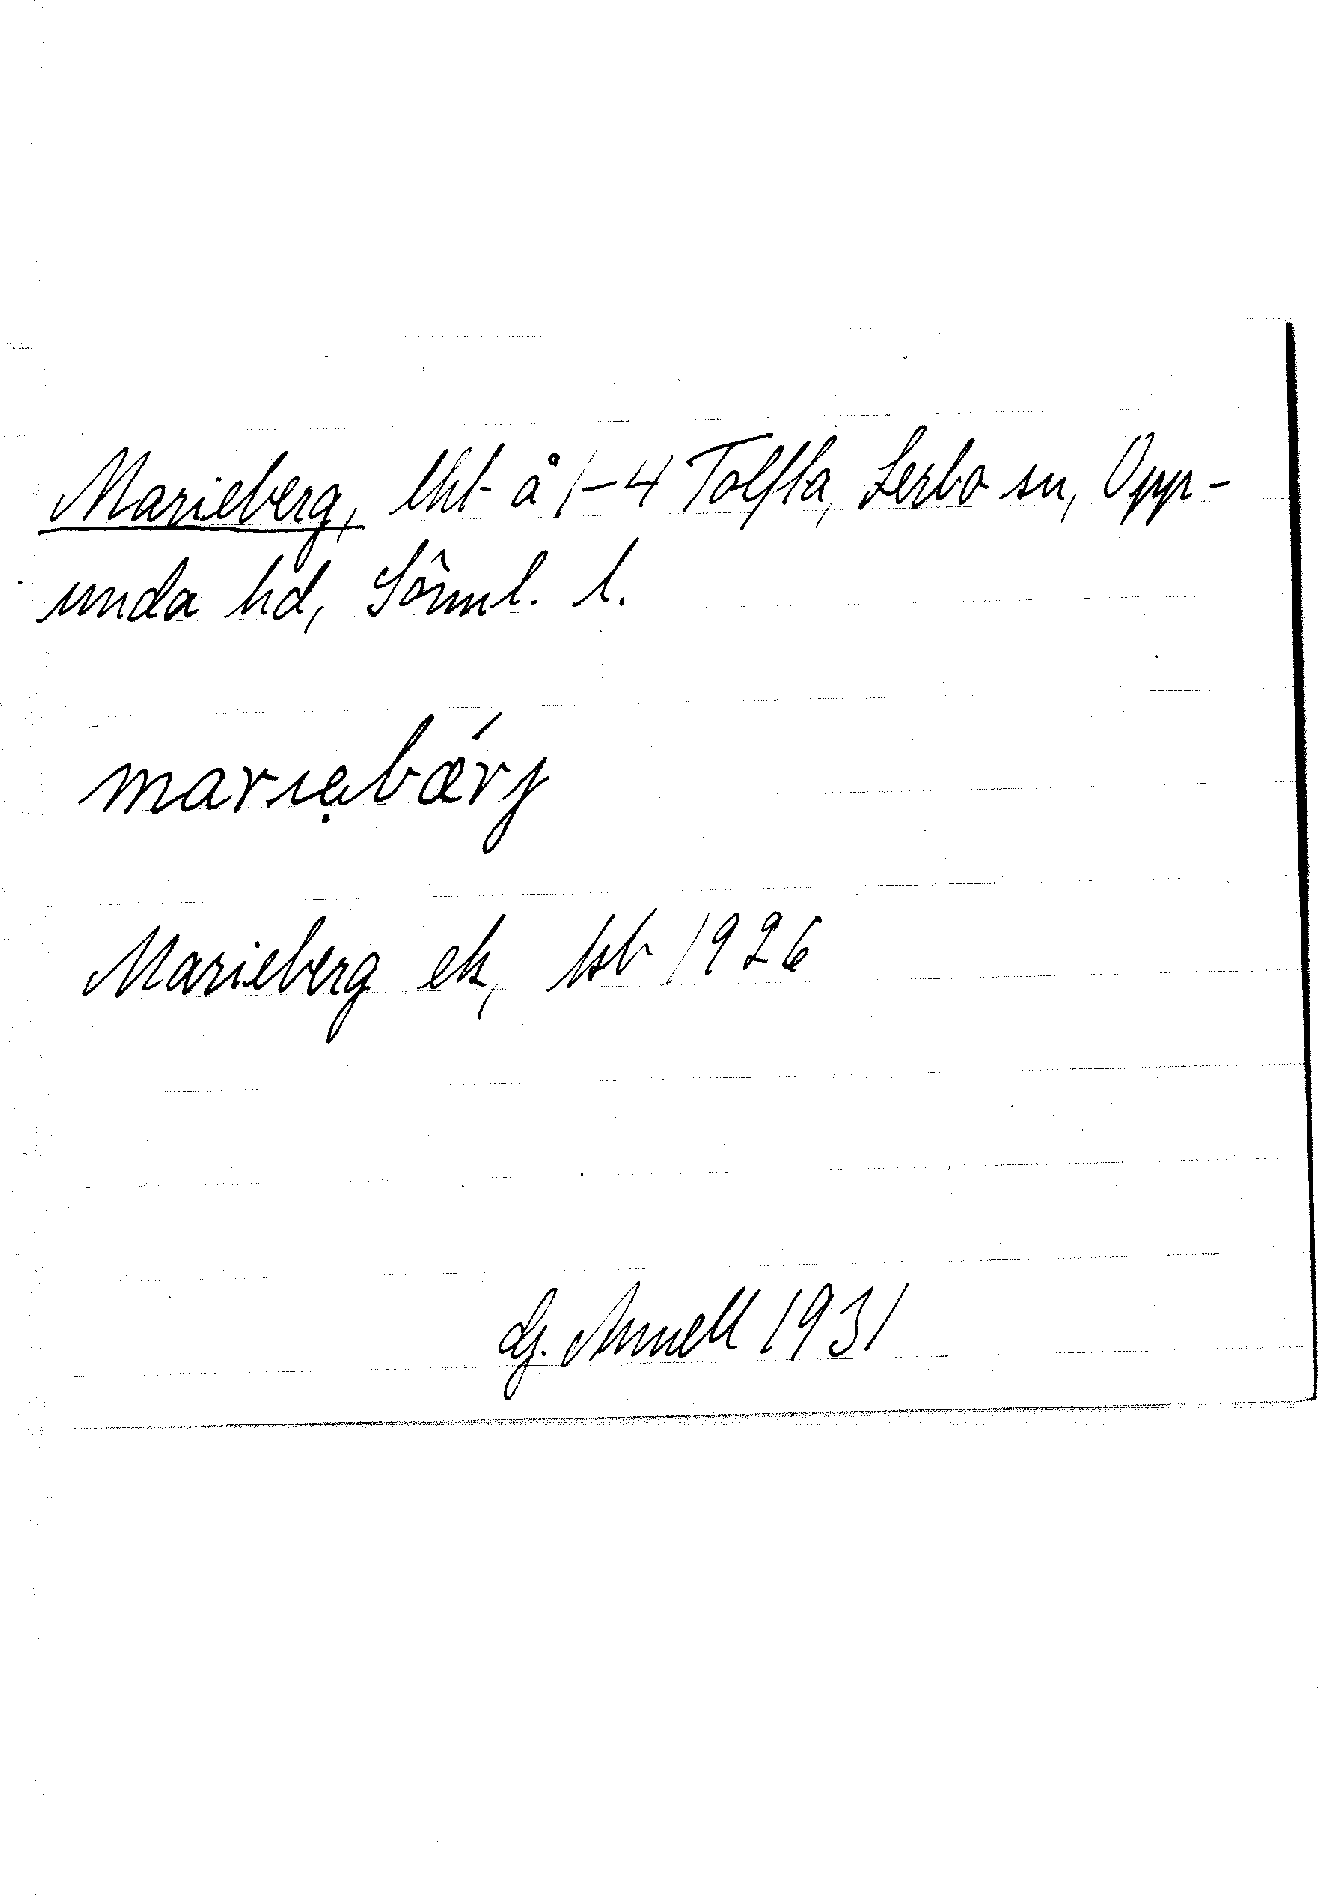 Marieberg, lht å 1-4 Tolfta, Lerbo sn, Opp-
unda hd, Sörml. l.
marıẹbǽrj
Marieberg ek, jsb 1926
Gj. Annell 1931